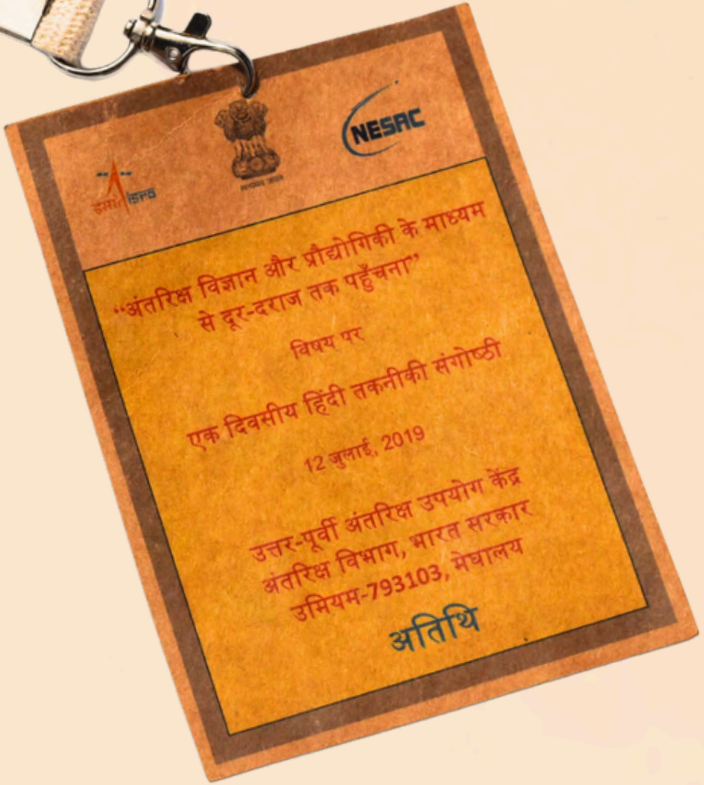 इसरो isro
NESAC
सत्यमेव जयते
“अंतरिक्ष विज्ञान और प्रौद्योगिकी के माध्यम
से दूर-दराज तक पहुँचना”
विषय पर
एक दिवसीय हिंदी तकनीकी संगोष्ठी
12 जुलाई, 2019
उत्तर-पूर्वी अंतरिक्ष उपयोग केंद्र
अंतरिक्ष विभाग, भारत सरकार
उमियम-793103, मेघालय
अतिथि